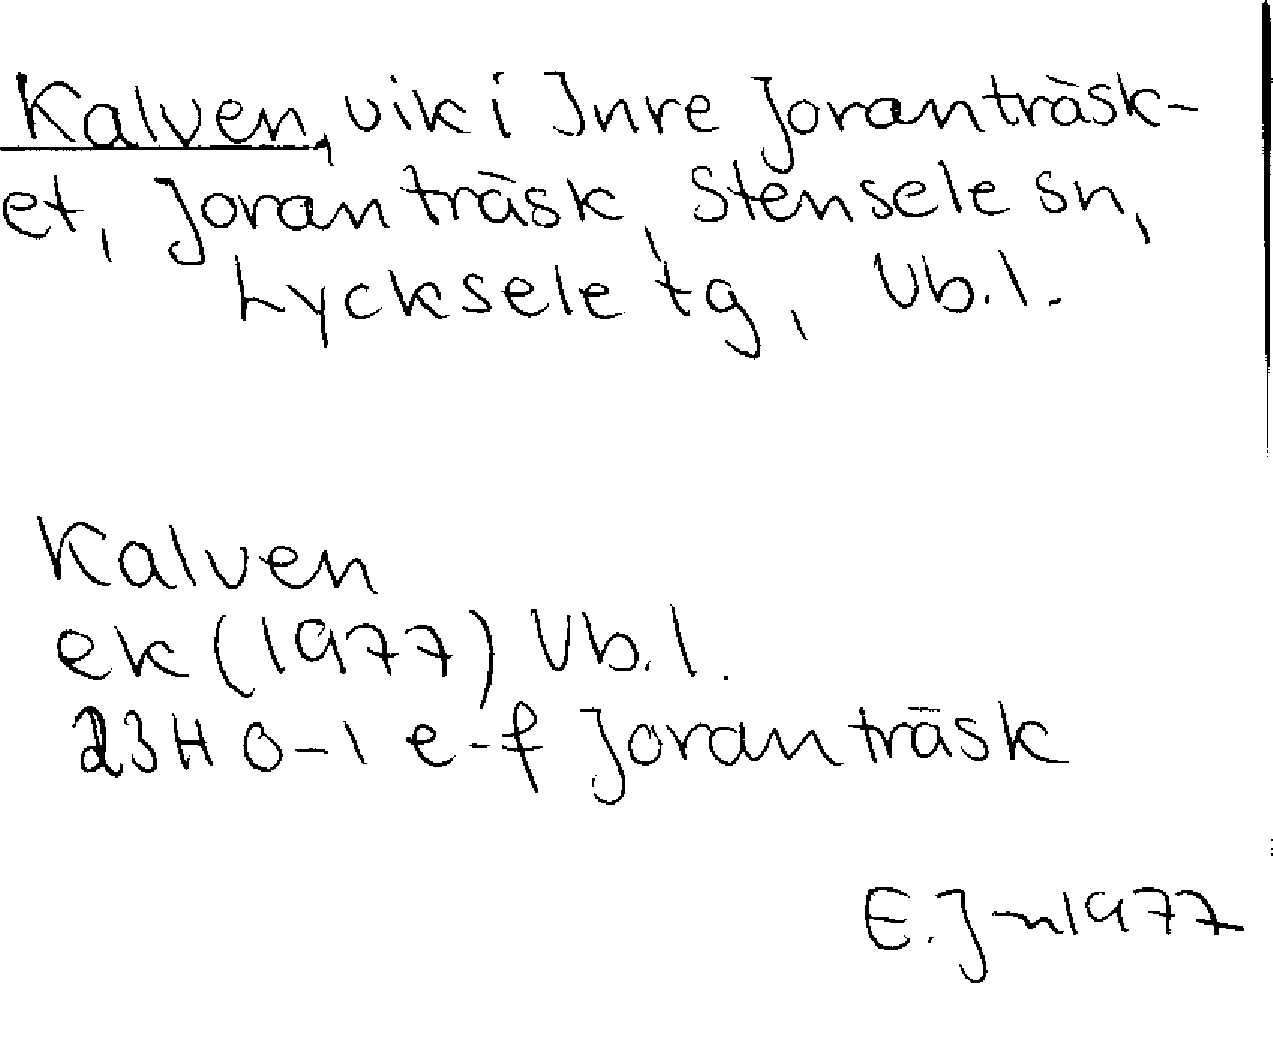 Kalven, vik i Inre Joranträsk-
et, Joranträsk, Stensele sn,
Lycksele tg, Vb.l.
Kalven
ek (1977) Vb.l.
23H 0-1 e-f Joranträsk
E.J-n 1977